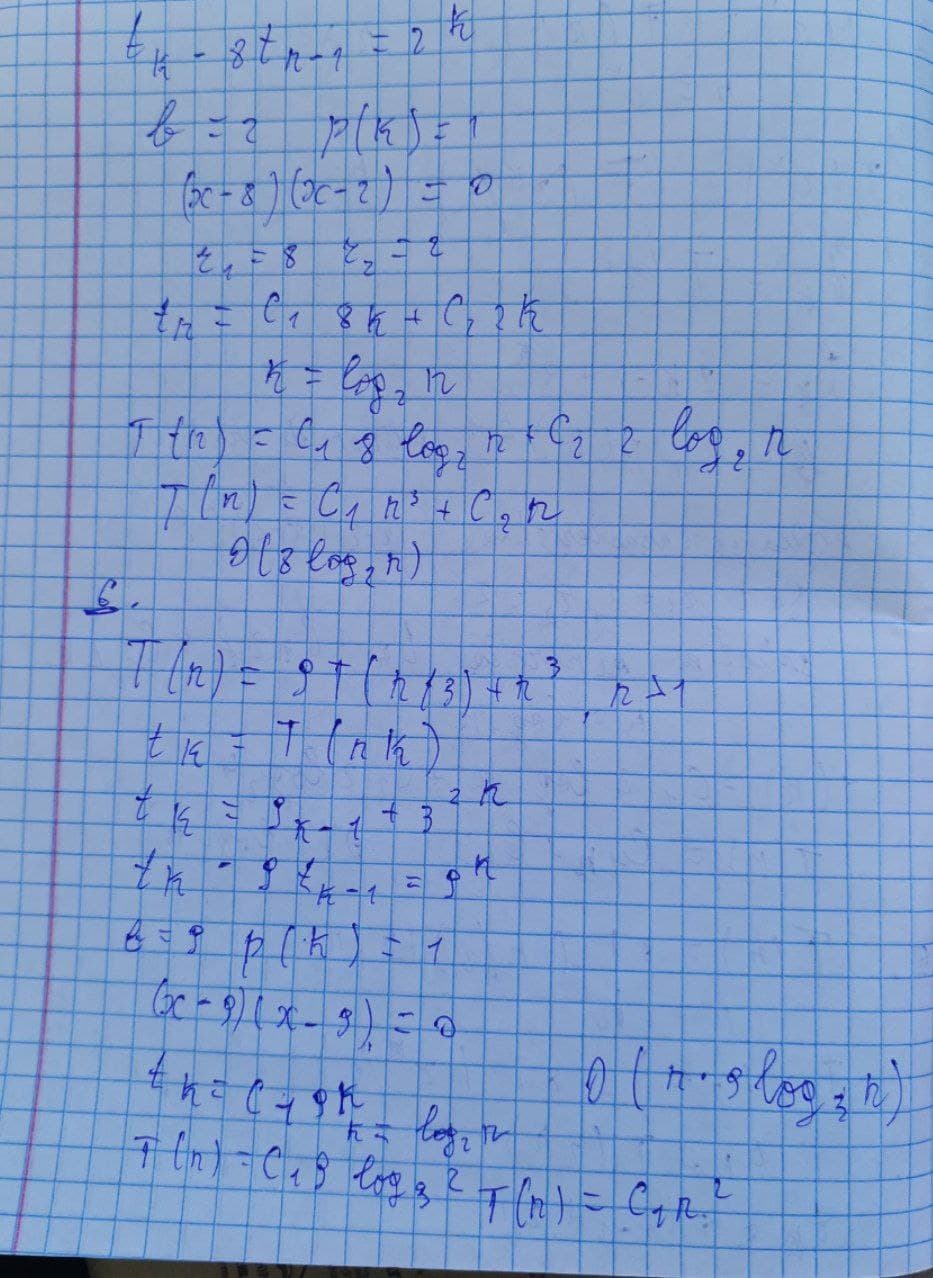 t_k - 8t_{n-1} = 2^k
b = 2 p(k) = 1
(x-8)(x-2) = 0
r_1 = 8 r_2 = 2
t_n = C_1 8k + C_2 2k
k = log_2 n
T t(n) = C_1 8 log_2 n + C_2 2 log_2 n
T(n) = C_1 n^3 + C_2 n
O(8 log_2 n)
6.
T(n) = 9T(n/3) + n^3, n>1
t_k = T(nk)
t_k = 9_{k-1} + 3^{2k}
t_k - 9t_{k-1} = 9^k
b = 9 p(k) = 1
(x-9)(x-9) = 0
t_k = C_1 9k
O(n · 9 log_3 n)
k = log_2 n
T(n) = C_1 9 log_3 2
T(n) = C_1 n^2